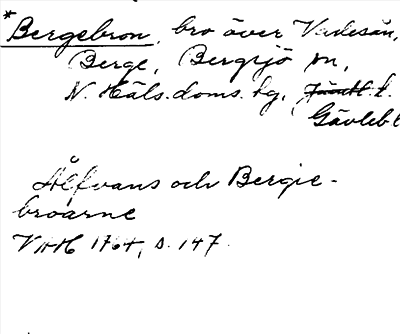 *Bergebron, bro över Vadesån,
Berge, Bergsjö sn,
N. Häls. doms. hg, Jämtl. l.
Gävleb l
Ålfvans och Bergie-
broarne
VAH 1764, s. 147.